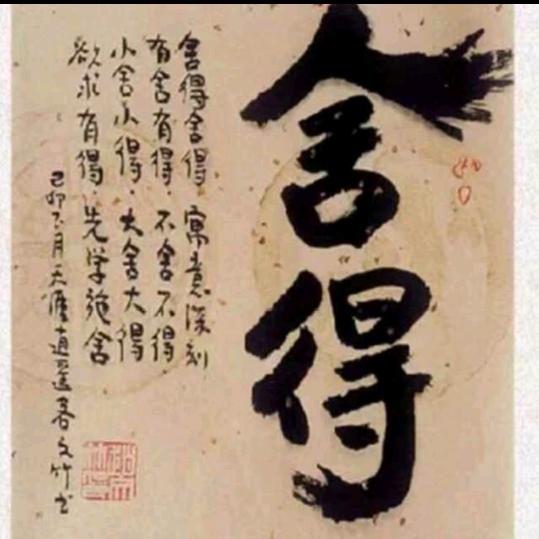 舍得
舍得舍得 寓意深刻
有舍有得 不舍不得
小舍小得 大舍大得
欲求有得 先学施舍
己卯 月天涯逍遥客文竹书